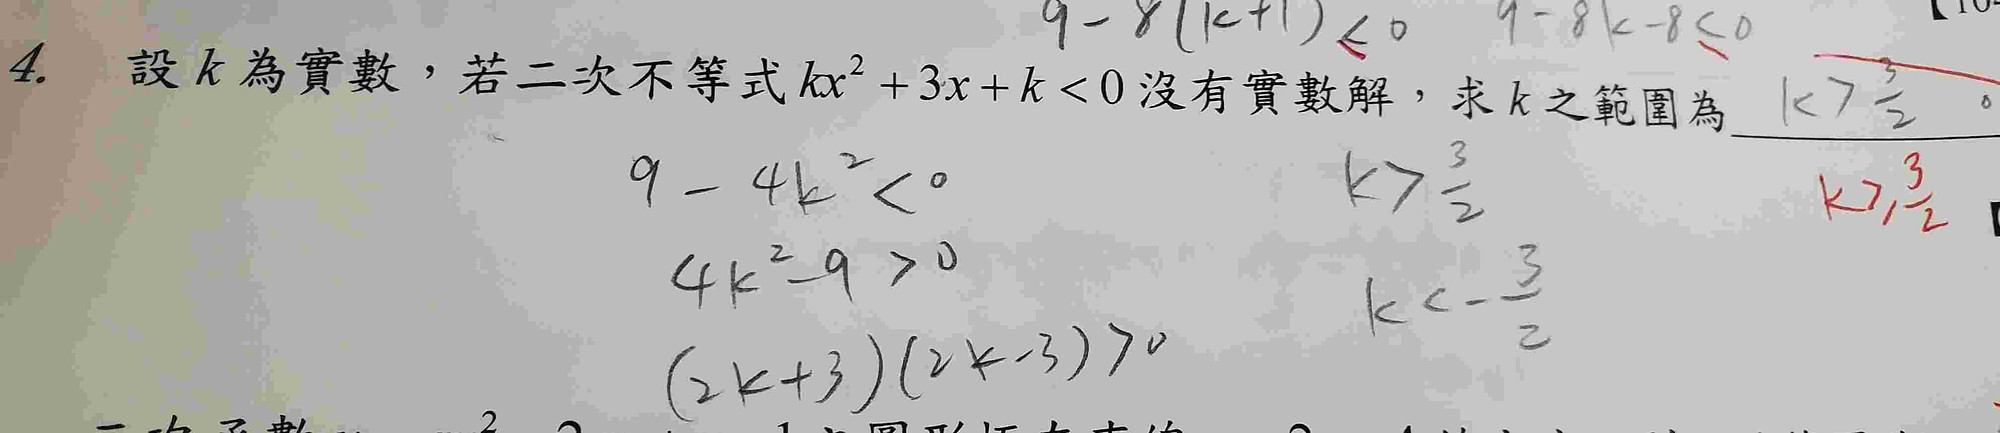 9-8(k+1)≤0 9-8k-8≤0
4. 設k為實數,若二次不等式kx²+3x+k<0沒有實數解,求k之範圍為 k>3/2 。
9-4k²<0 k>3/2 k≥3/2
4k²-9>0 k<-3/2
(2k+3)(2k-3)>0